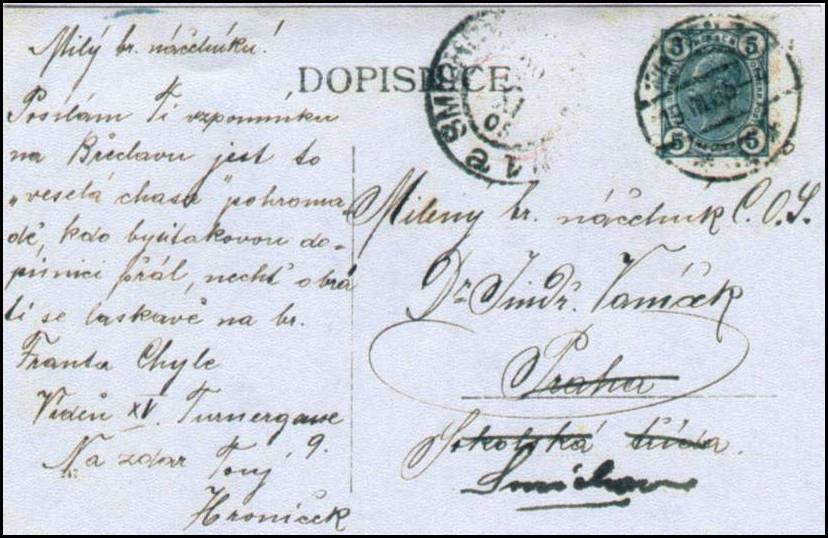 Milý br. náčelníku!
Posílám Ti vzpomínku
na Břeclavu jest to
„veselá chasa" pohroma-
dě, kdo by si takovou do-
pisnici přál, nechť obrá
tí se laskavě na br.
Franta Chyle
Vídeň XV. Turnergasse
9.
Na zdar Tvůj
Hroníček
DOPISNICE
Milený br. náčelník Č.O.S.
Dr. Jindř. Vaníček
Praha
Sokolská třída.
Smíchov
5 5
5 5